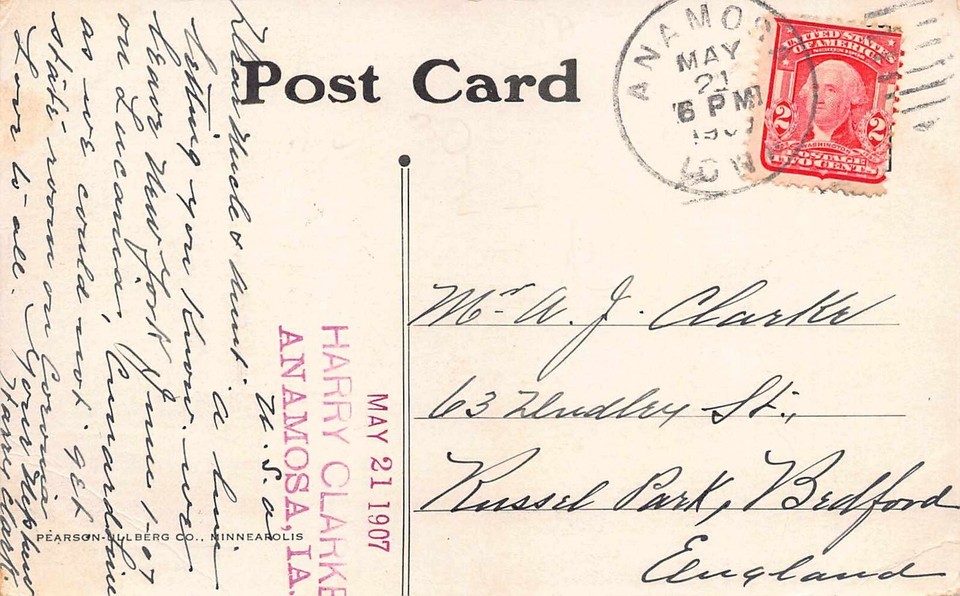 Post Card
ANAMOSA
MAY
21
6 PM
1907
IOWA
UNITED STATES
OF AMERICA
SERIES 1902
2 2
WASHINGTON
POSTAGE
TWO CENTS
MAY 21 1907
HARRY CLARKE
ANAMOSA, IA.
U.S.a.
Dear Uncle & Aunt. a line
letting you know we
leave New York June 1-07
on Lucania, Cunard Line
as we could not get
state room on Coronia
Love to all. Your Nephew
Harry Clark.
Mr A. J. Clarke
63 Dudley St.,
Russel Park, Bedford
England
PEARSON-ULLBERG CO., MINNEAPOLIS